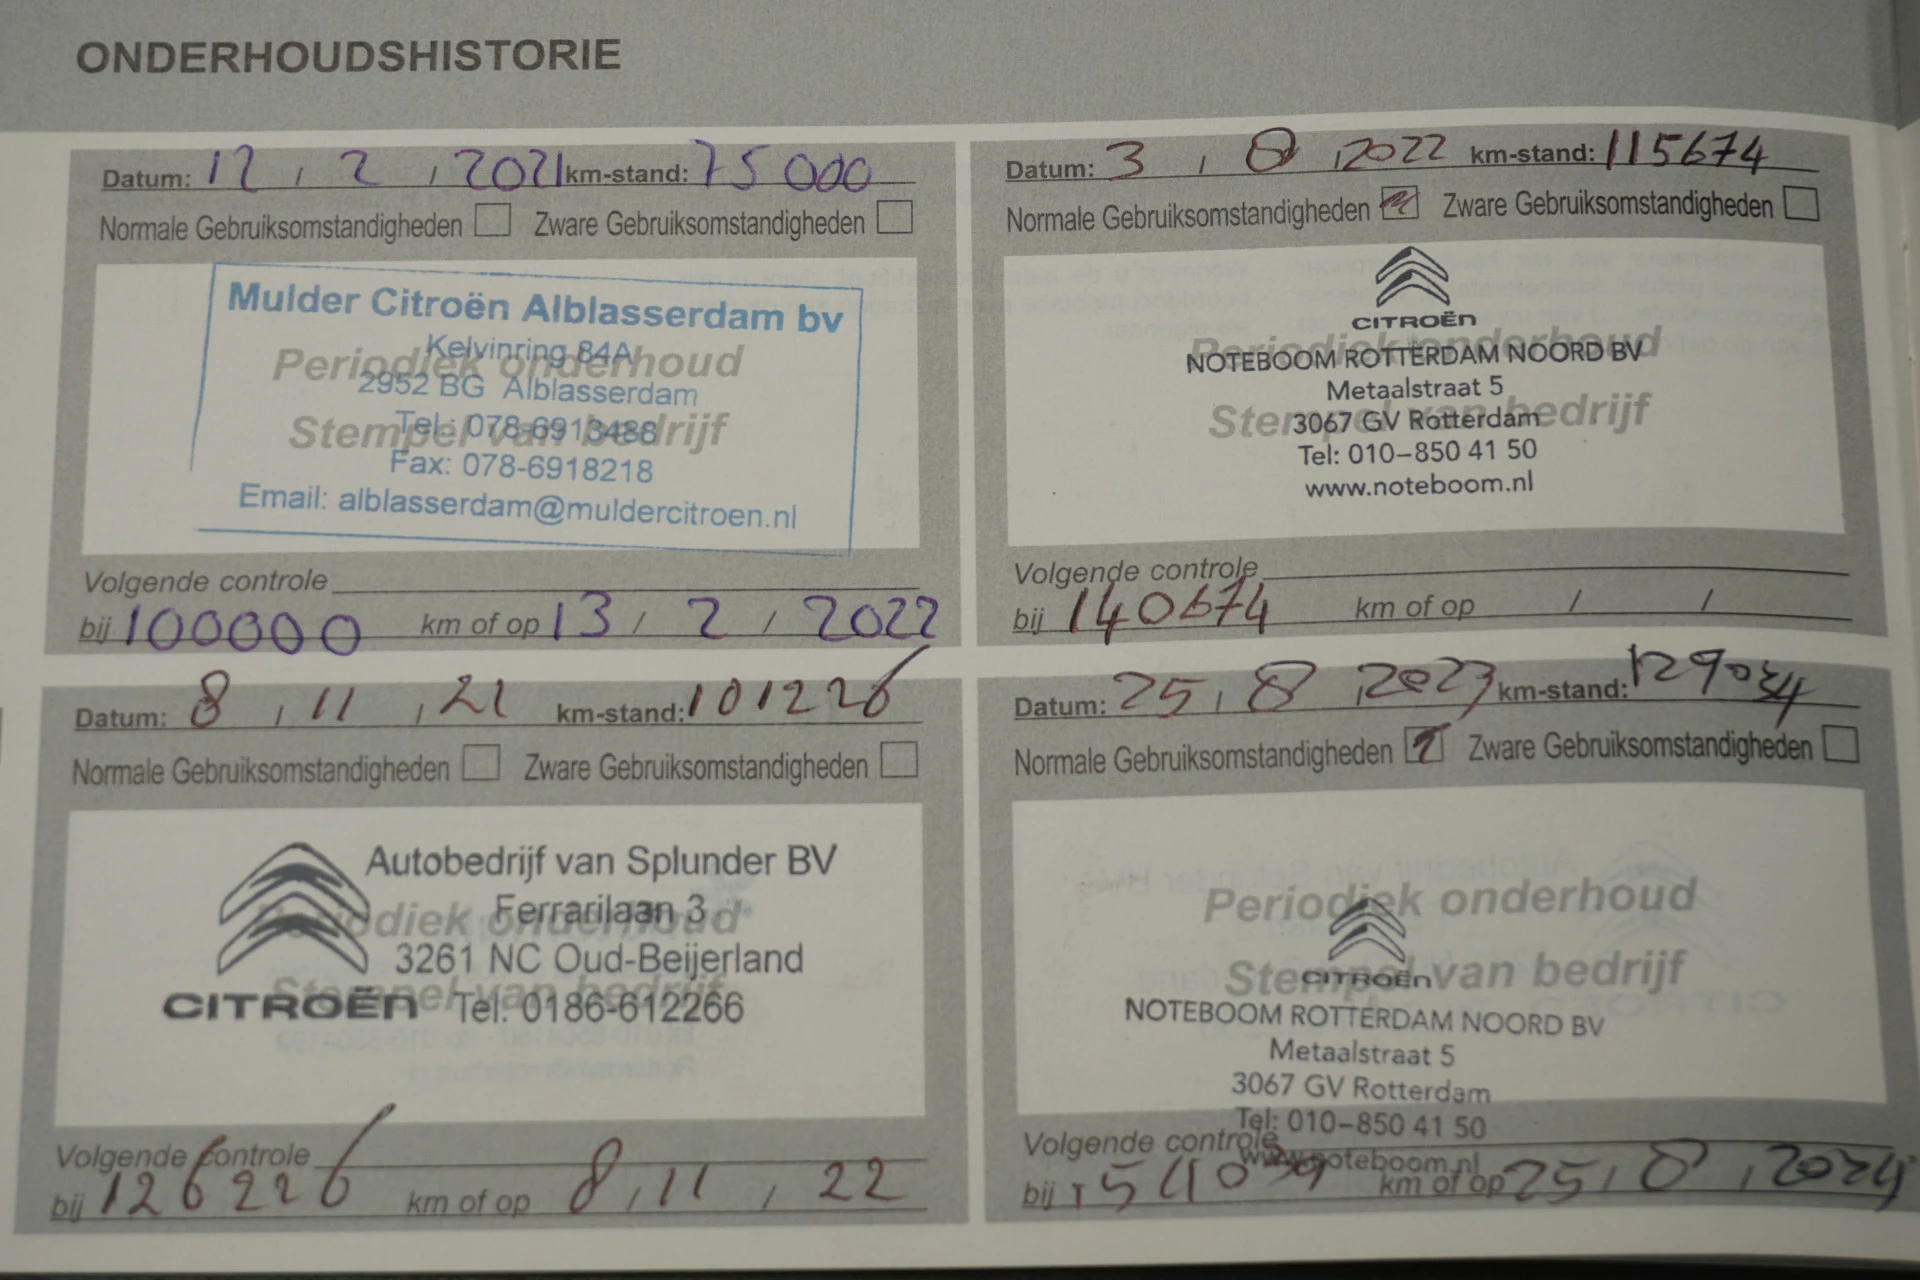 ONDERHOUDSHISTORIE
Datum: 12 / 2 / 2021 km-stand: 75 000
Normale Gebruiksomstandigheden Zware Gebruiksomstandigheden
Mulder Citroën Alblasserdam bv
Kelvinring 84A
Periodiek onderhoud
2952 BG Alblasserdam
Tel.: 078-6913488
Stempel van bedrijf
Fax: 078-6918218
Email: alblasserdam@muldercitroen.nl
Volgende controle
bij 100000 km of op 13 / 2 / 2022
Datum: 8 / 11 / 21 km-stand: 101226
Normale Gebruiksomstandigheden Zware Gebruiksomstandigheden
Autobedrijf van Splunder BV
Ferrarilaan 3
Periodiek onderhoud
3261 NC Oud-Beijerland
Stempel van bedrijf
CITROËN Tel: 0186-612266
Volgende controle
bij 126226 km of op 8 / 11 / 22
Datum: 3 / 8 / 2022 km-stand: 115674
Normale Gebruiksomstandigheden Zware Gebruiksomstandigheden
CITROËN
Periodiek onderhoud
NOTEBOOM ROTTERDAM NOORD BV
Metaalstraat 5
Stempel van bedrijf
3067 GV Rotterdam
Tel: 010-850 41 50
www.noteboom.nl
Volgende controle
bij 140674 km of op / /
Datum: 25 / 8 / 2023 km-stand:
Normale Gebruiksomstandigheden Zware Gebruiksomstandigheden
Periodiek onderhoud
Stempel van bedrijf
CITROËN
NOTEBOOM ROTTERDAM NOORD BV
Metaalstraat 5
3067 GV Rotterdam
Tel: 010-850 41 50
Volgende controle
www.noteboom.nl
bij km of op 25 / 8 / 2024